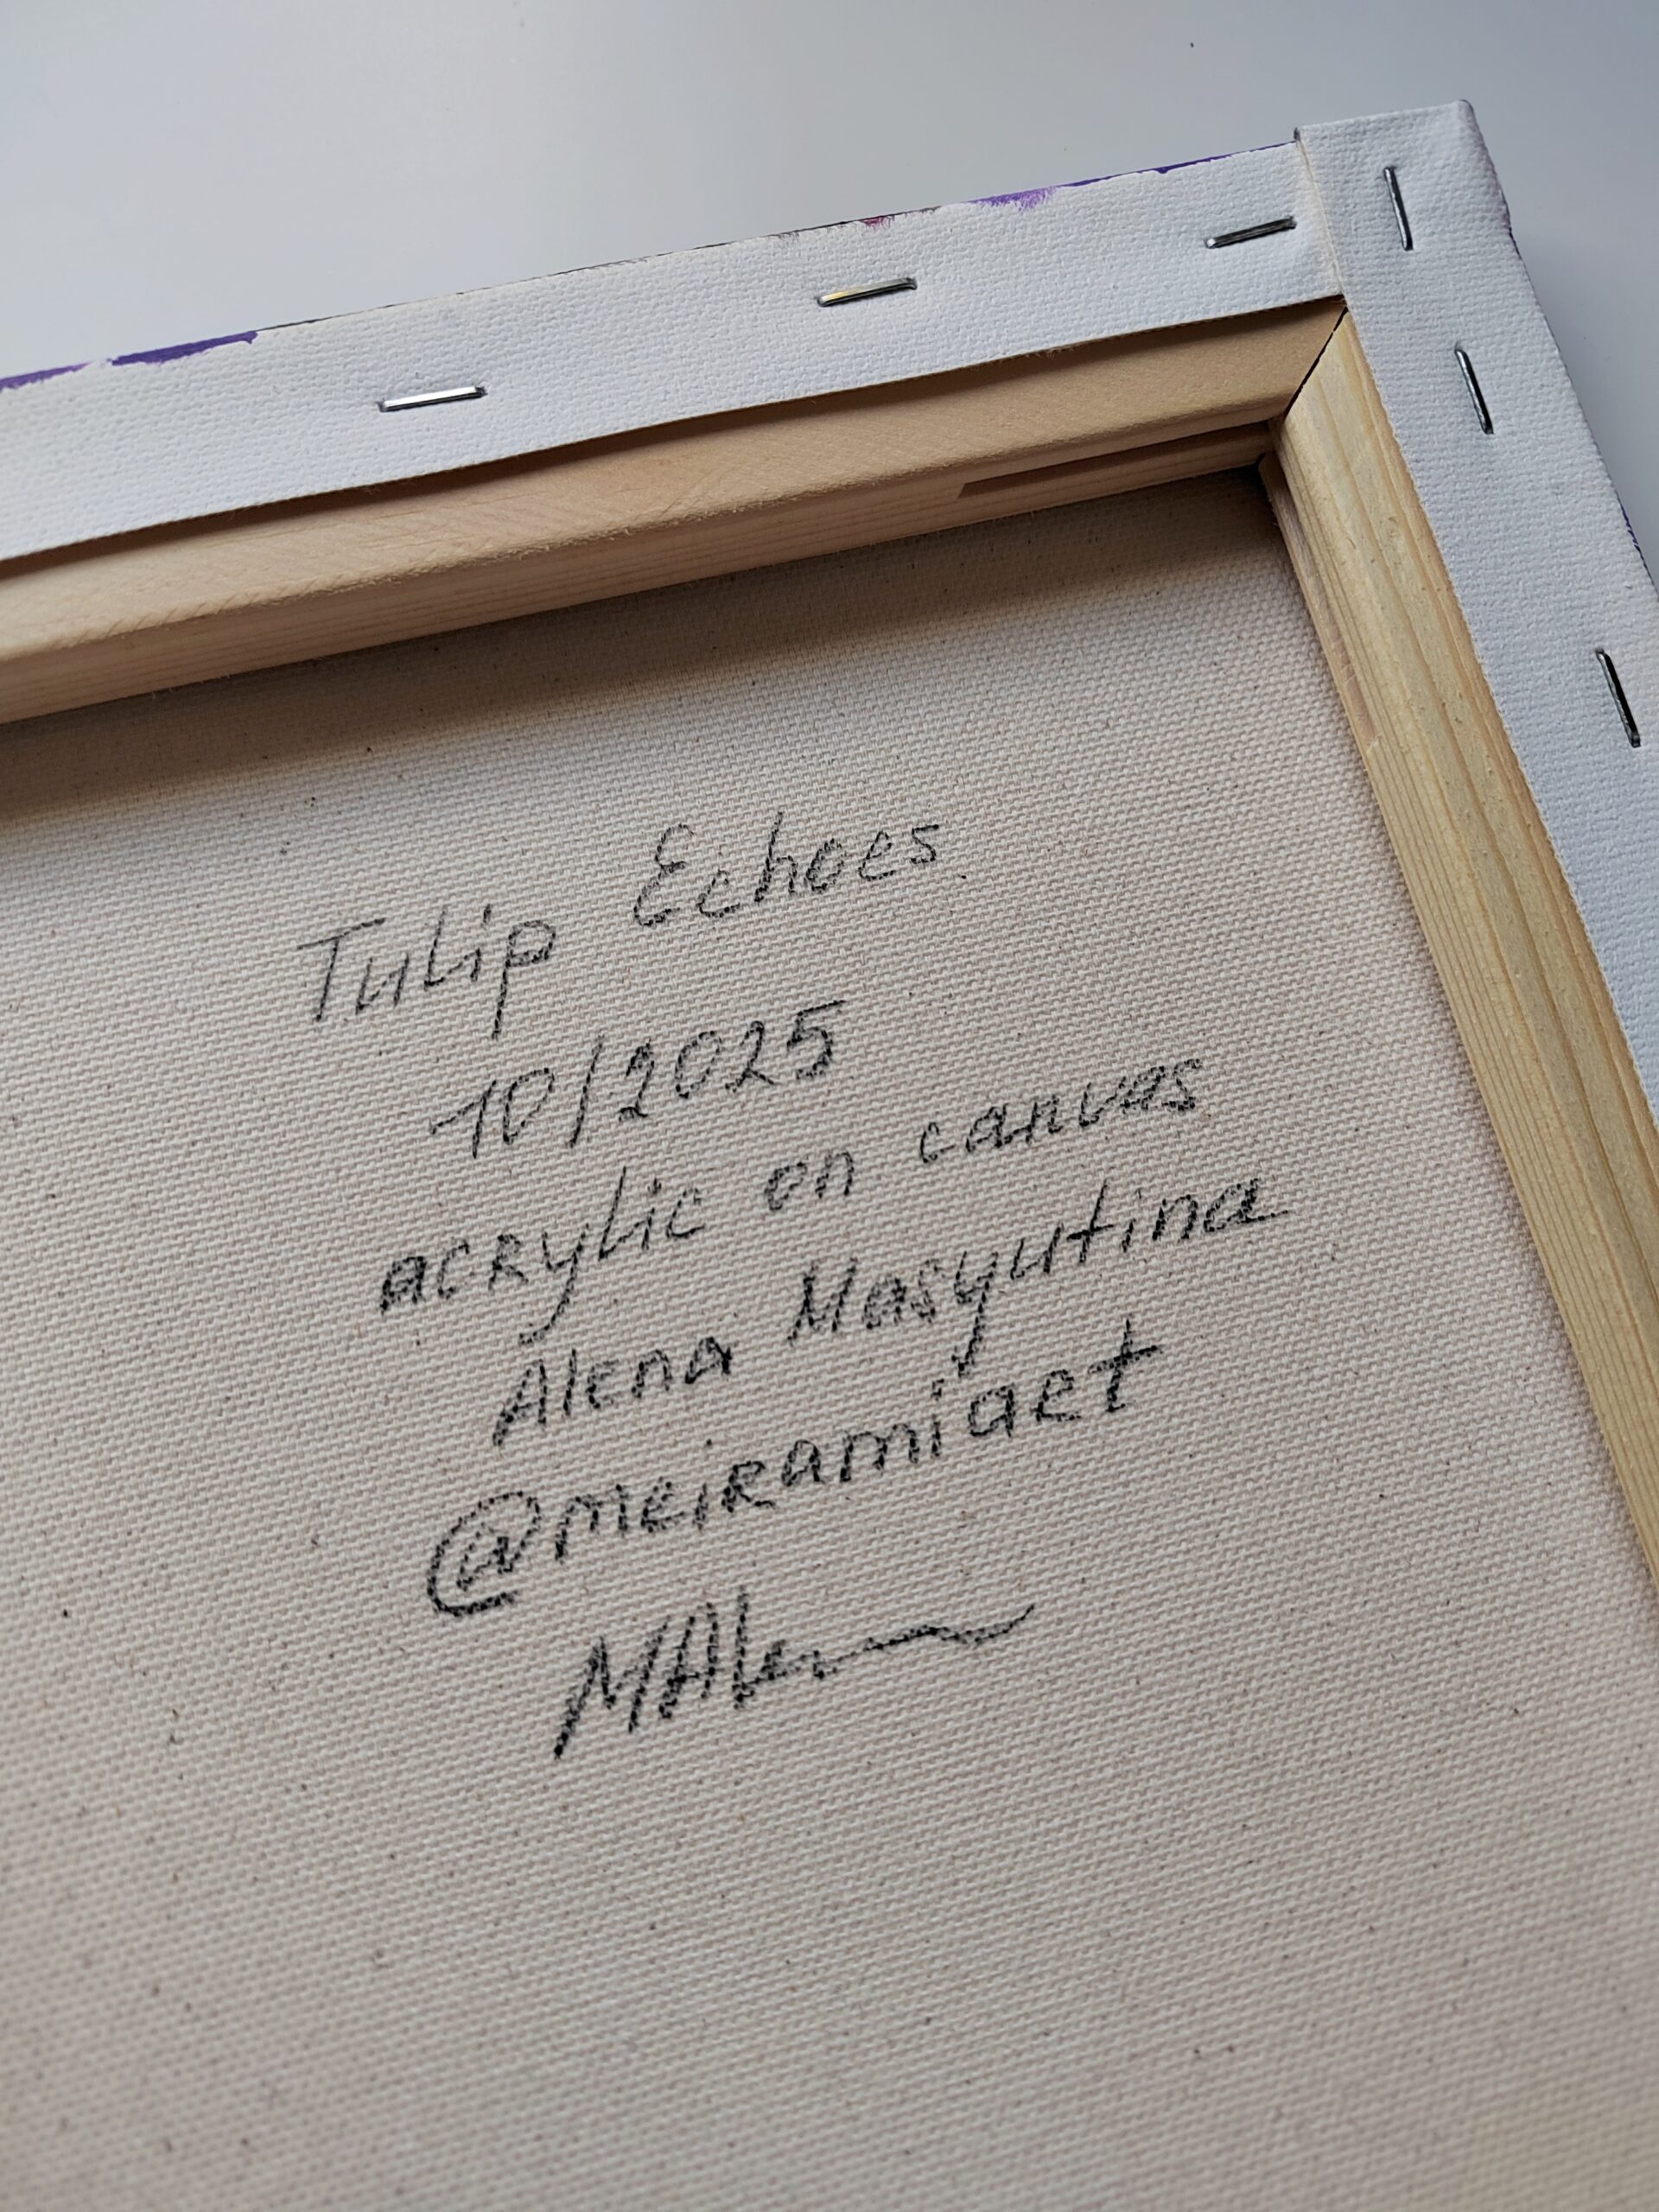 Tulip Echoes
10/2025
acrylic on canvas
Alena Masyutina
@meiramiaet
MAlen